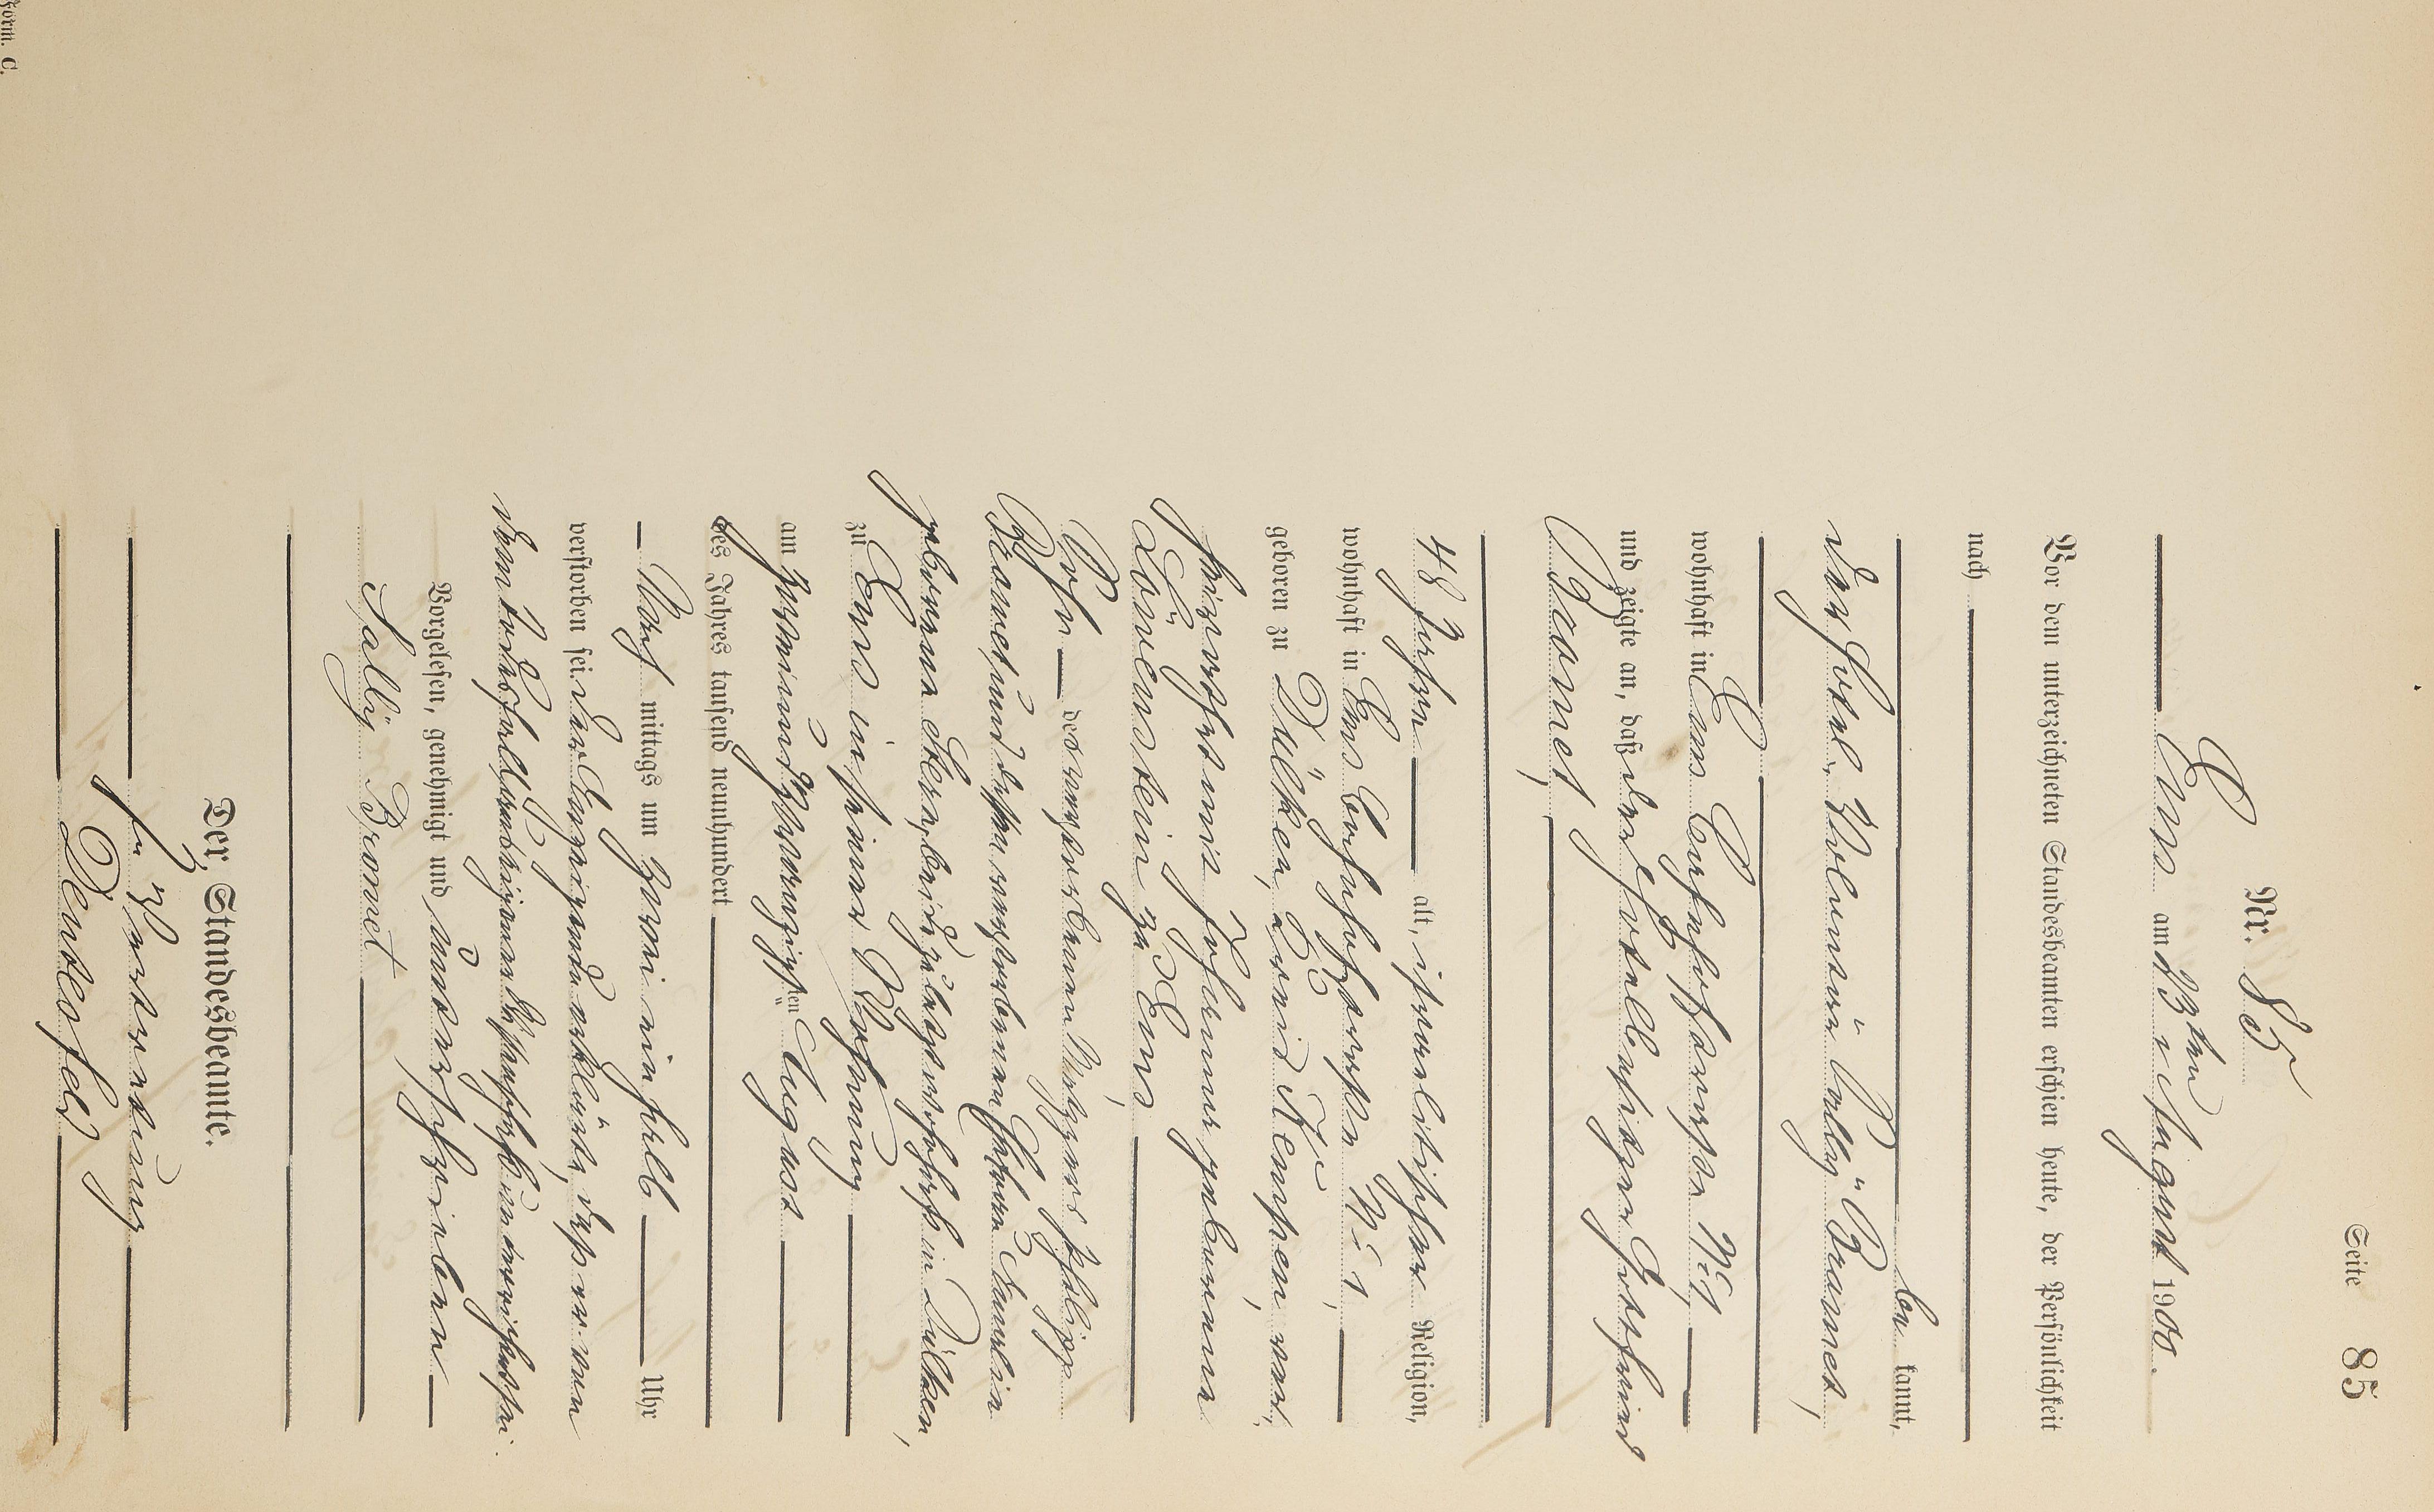 Seite 85
Nr. 85
Ems am 23ten August 1900.
Vor dem unterzeichneten Standesbeamten erschien heute, der Persönlichkeit
nach
be kannt,
der Hotel-Volontär Sally Bromet,
wohnhaft in Ems Bahnhofstraße No 1
und zeigte an, daß der Hotelbesitzer Gottfried
Bromet,
48 Jahre alt, israelitischer Religion,
wohnhaft in Ems Bahnhofstraße No 1,
geboren zu Dülken, Kreis Kempen, ver¬
heirathet mit Johanna geborene
Löwenstein zu Ems
Sohn des verstorbenen Metzgers Philipp
Bromet und dessen verstorbenen Ehefrau
geborene beide zuletzt wohnhaft in Dülken,
zu Ems in seiner Wohnung
am zweiundzwanzigsten August
des Jahres tausend neunhundert
Nach mittags um zwei ein halb Uhr
verstorben sei. Der Anzeigende erklärte, daß er von
dem Todesfall aus eigener Wissenschaft unterrichtet sei.
Vorgelesen, genehmigt und unterschrieben
Sally Bromet
Der Standesbeamte.
In Vertretung
Form. C.